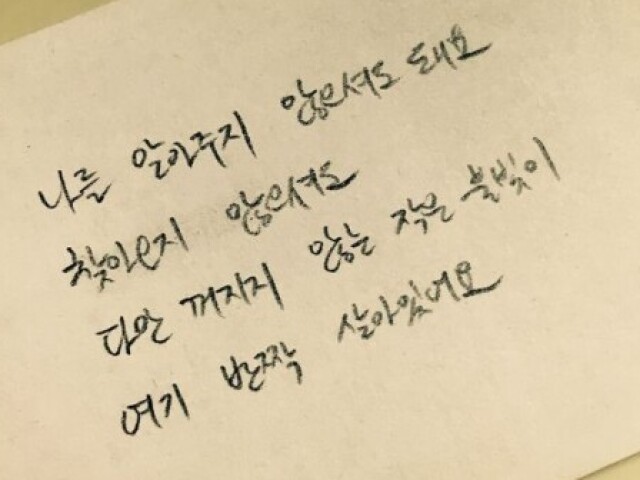 나를 알아주지 않으셔도 돼요
찾아오지 않으셔도
다만 꺼지지 않는 작은 불빛이
여기 반짝 살아있어요